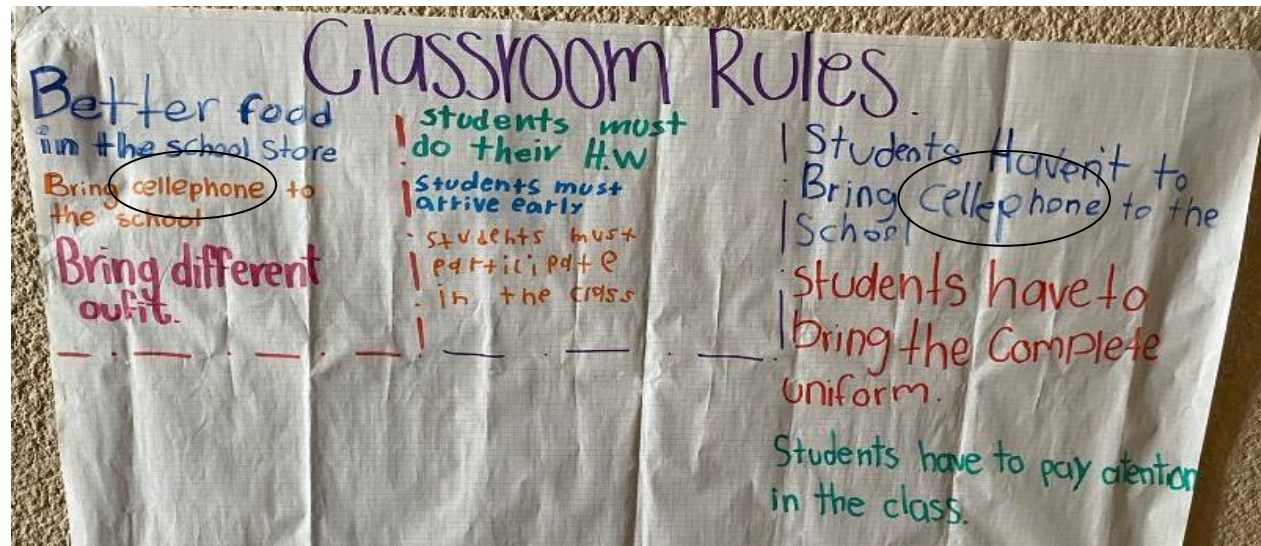 Classroom Rules.
Better food
in the school Store
Bring cellephone to
the school
Bring different
oufit.
students must
do their H.W
students must
arrive early
students must
participate
in the class
Students Haven't to
Bring cellephone to the
School
Students have to
bring the Complete
uniform.
Students have to pay atention
in the class.